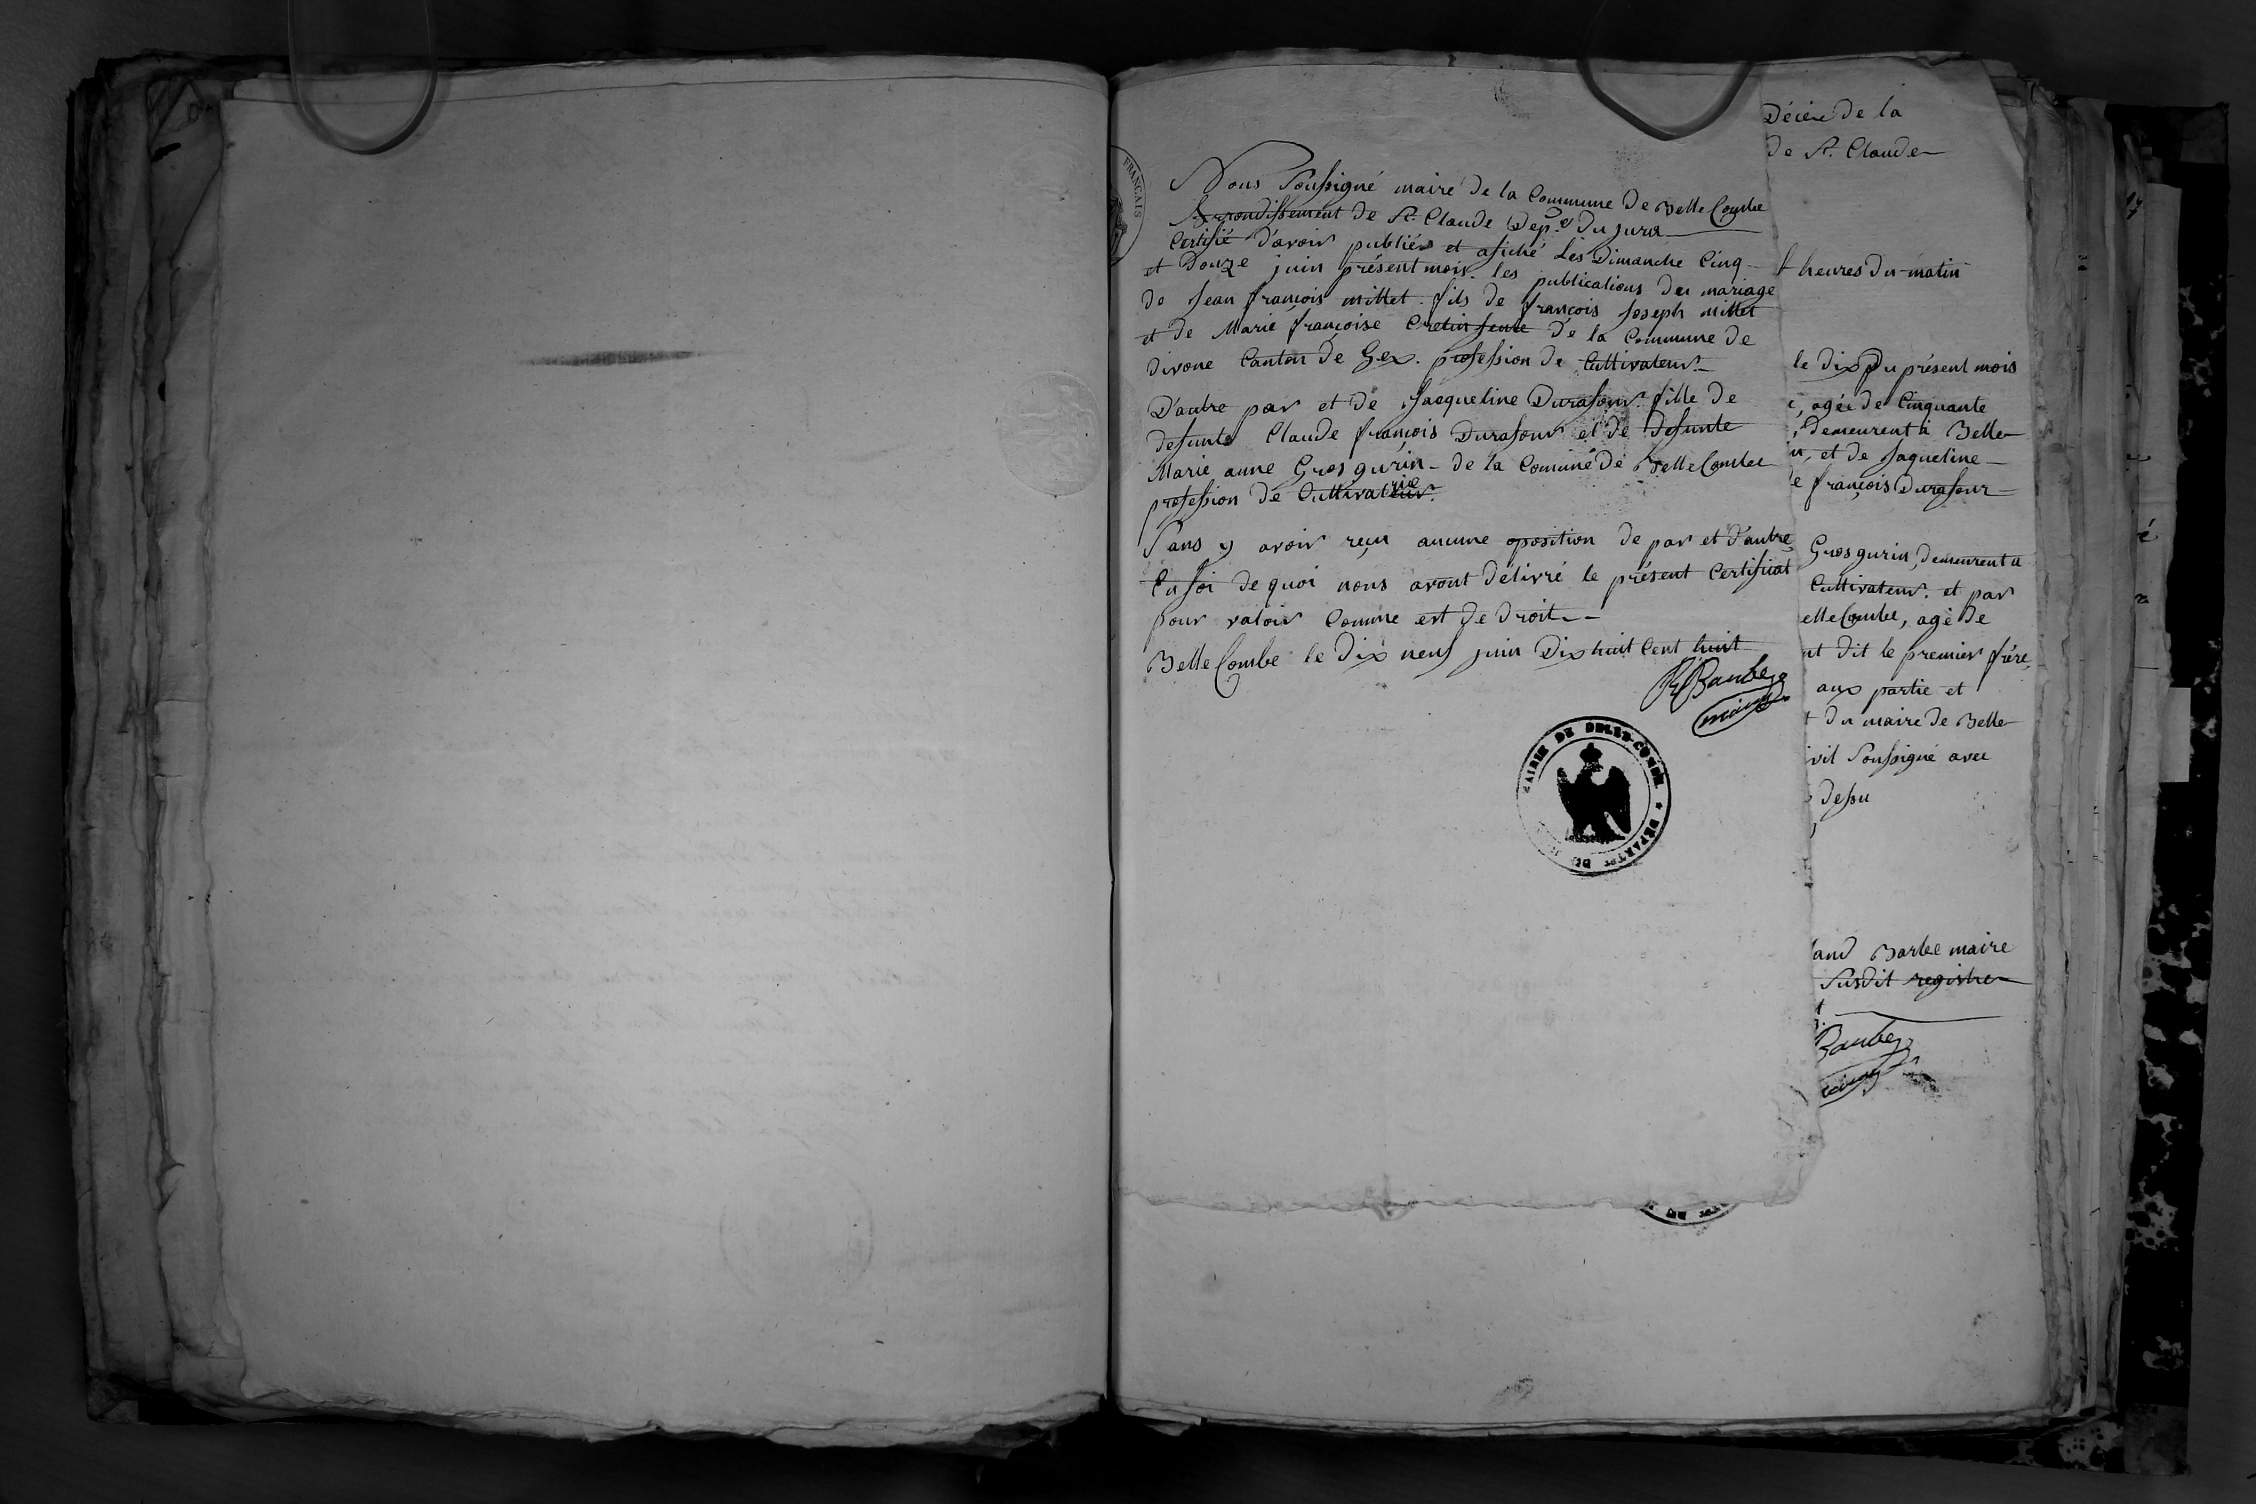 FRANÇAIS
Nous Soussigné maire de la Commune de Belle Combe
Arrondissement de St. Claude Dep.t du jura
Certifié d'avoir publiér et afiché Les Dimanche Cinq
et Douze juin présent mois. les publications du mariage
de Jean françois millet. fils de françois Joseph millet
et de Marie françoise Cretin de la Commune de
divone Canton de Gex. profession de Cultivateur
D'autre par et de Jacqueline Durafour fille de
defunte Claude françois Durafour et de defunte
Marie anne Gros gurin - de la Comune de Belle Combe
profession de Cultivatrice.
Sans y avoir reçu aucune oposition de par et d'autre
En foi de quoi nous avont délivré le présent Certificat
pour valoir Comme est de droit--
Belle Combe le dix neuf juin Dixhuit Cent huit
maire
MAIRIE DE BELLE-COMBE * DÉPARTt DU
Décéré de la
de St. Claude
heures du matin
le dix du présent mois
agée de Cinquante
demeurent à Belle
et de Jaqueline
françois Durafour
Gros gurin, demeurent a
Cultivateur. et par
elle Combe, agé de
nt dit le premier frére
aux partie et
du maire de Belle
ivil Soussigné avec
dessu
and Barbe maire
Susdit registre